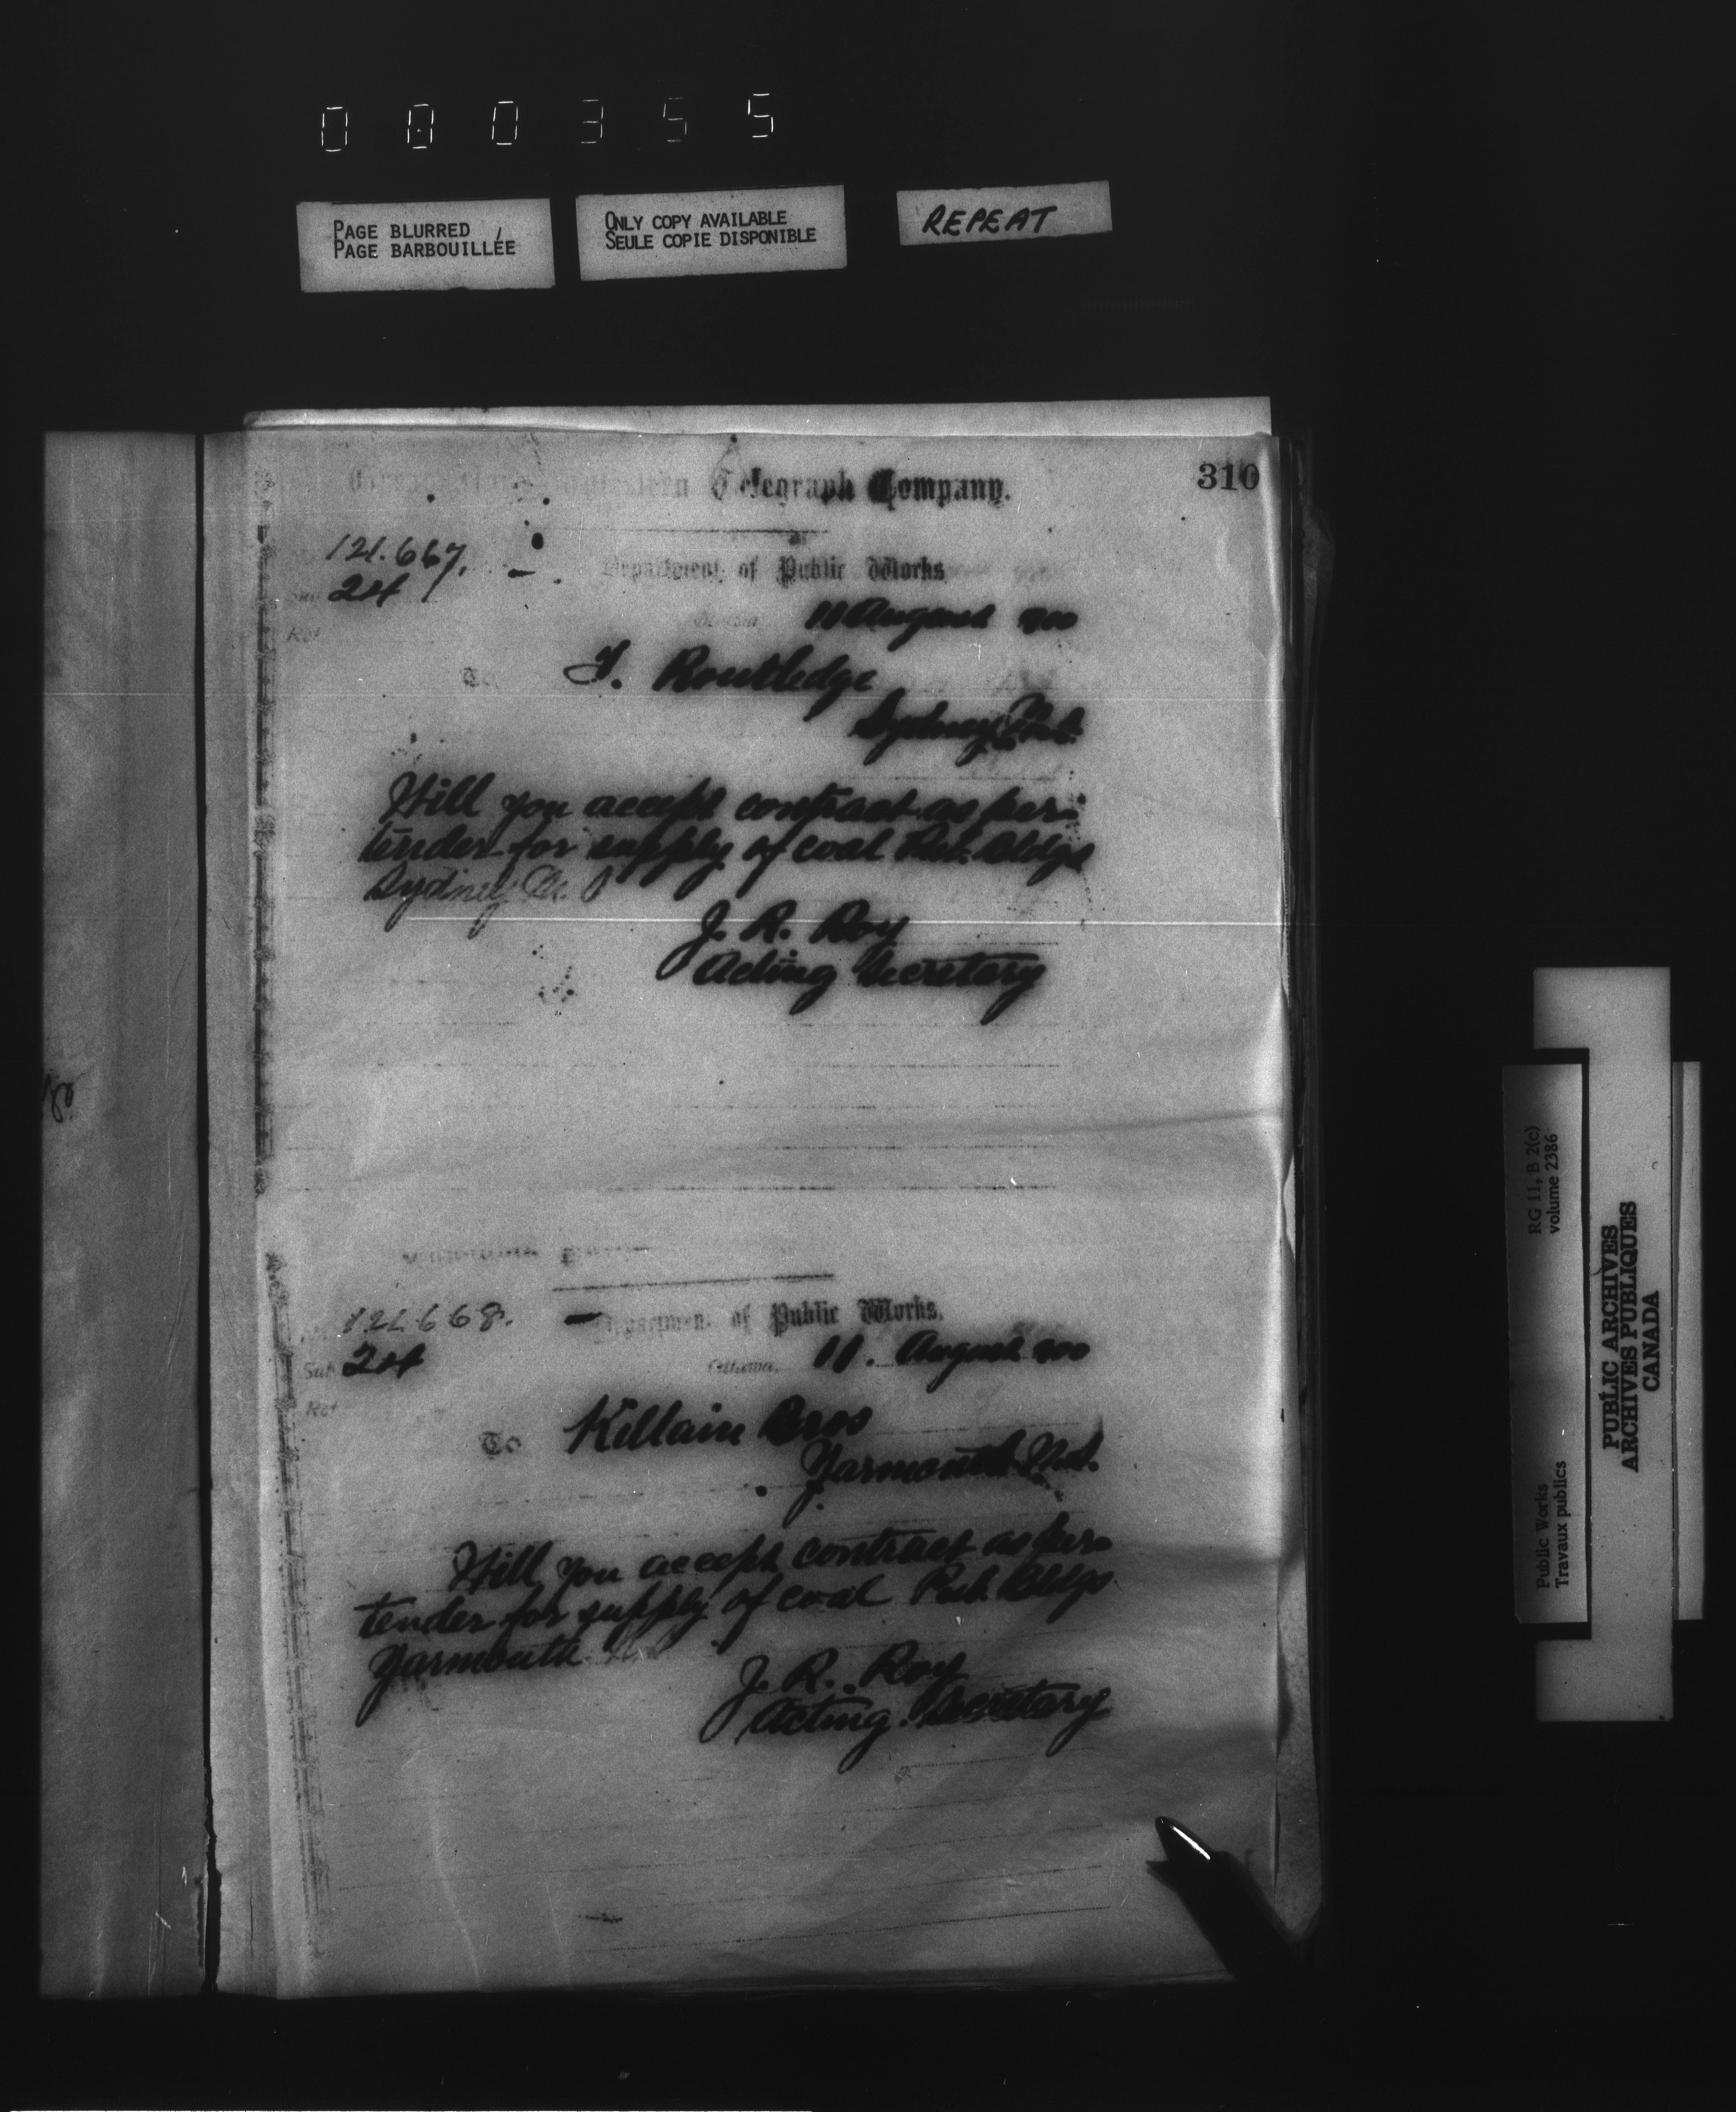 000355
PAGE BLURRED
PAGE BARBOUILLÉE
ONLY COPY AVAILABLE
SEULE COPIE DISPONIBLE
REPEAT
310
Western Telegraph Company.
121.667.
Department of Public Works
Sub 24
Ref
Ottawa 11 August 900
To F. Routledge
Sydney N.S.
Will you accept contract as per
tender for supply of coal Pub. Bldgs
Sydney
J. R. Roy
Acting Secretary
121668.
Department of Public Works.
Sub 24
Ottawa, 11. August 900
Ref
To Killam Bros
Yarmouth N.S.
Will you accept contract as per
tender for supply of coal Pub. Bldgs
Yarmouth
J. R. Roy
Acting Secretary
RG 11, B 2(c)
volume 2386
Public Works
Travaux publics
PUBLIC ARCHIVES
ARCHIVES PUBLIQUES
CANADA